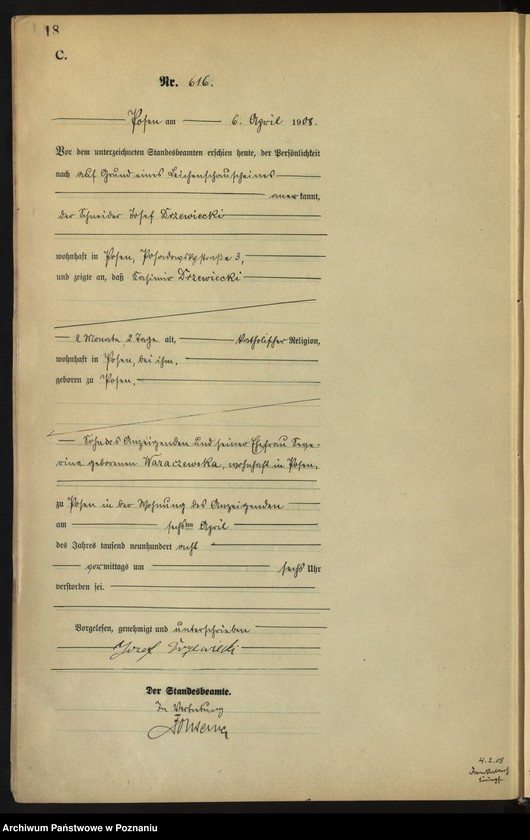 18
C.
Nr. 616.
Posen am 6. April 1908.
Vor dem unterzeichneten Standesbeamten erschien heute, der Persönlichkeit
nach auf Grund eines Leichenschauscheines
anerkannt,
der Schneider Josef Drzewiecki
wohnhaft in Posen, Posadowskystraße 3,
und zeigte an, daß Kasimir Drzewiecki
2 Monate 2 Tage alt, katholischer Religion,
wohnhaft in Posen, bei ihm,
geboren zu Posen,
Sohn des Anzeigenden und seiner Ehefrau Seve-
rina geborenen Waraczewska, wohnhaft in Posen,
zu Posen in der Wohnung des Anzeigenden
am sechsten April
des Jahres tausend neunhundert acht
vormittags um sechs Uhr
verstorben sei.
Vorgelesen, genehmigt und unterschrieben
Józef Drzewiecki
Der Standesbeamte.
In Vertretung
4.2.08
Archiwum Państwowe w Poznaniu